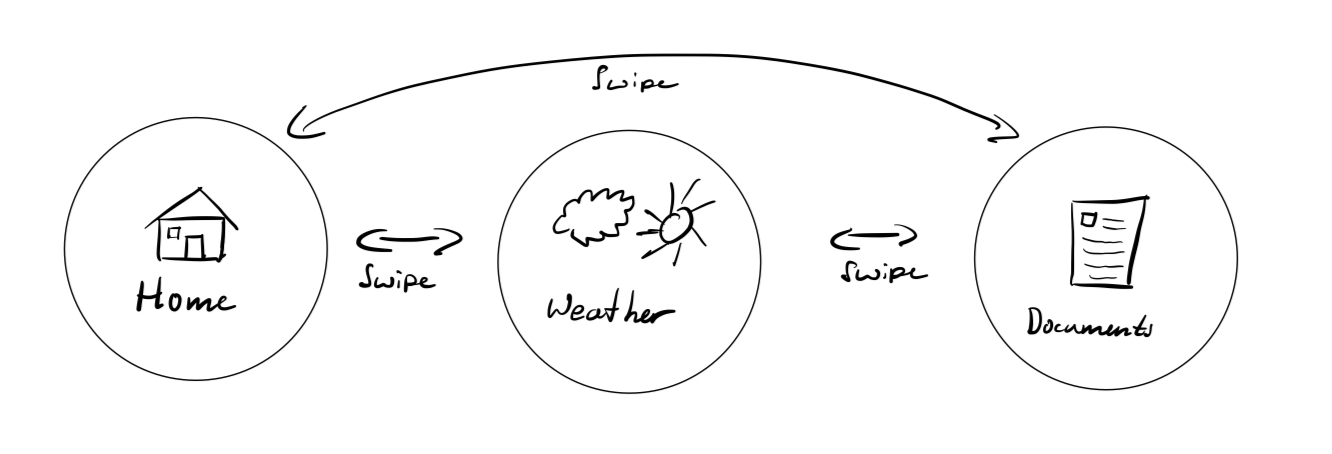 Swipe
Home
Swipe
Weather
Swipe
Documents